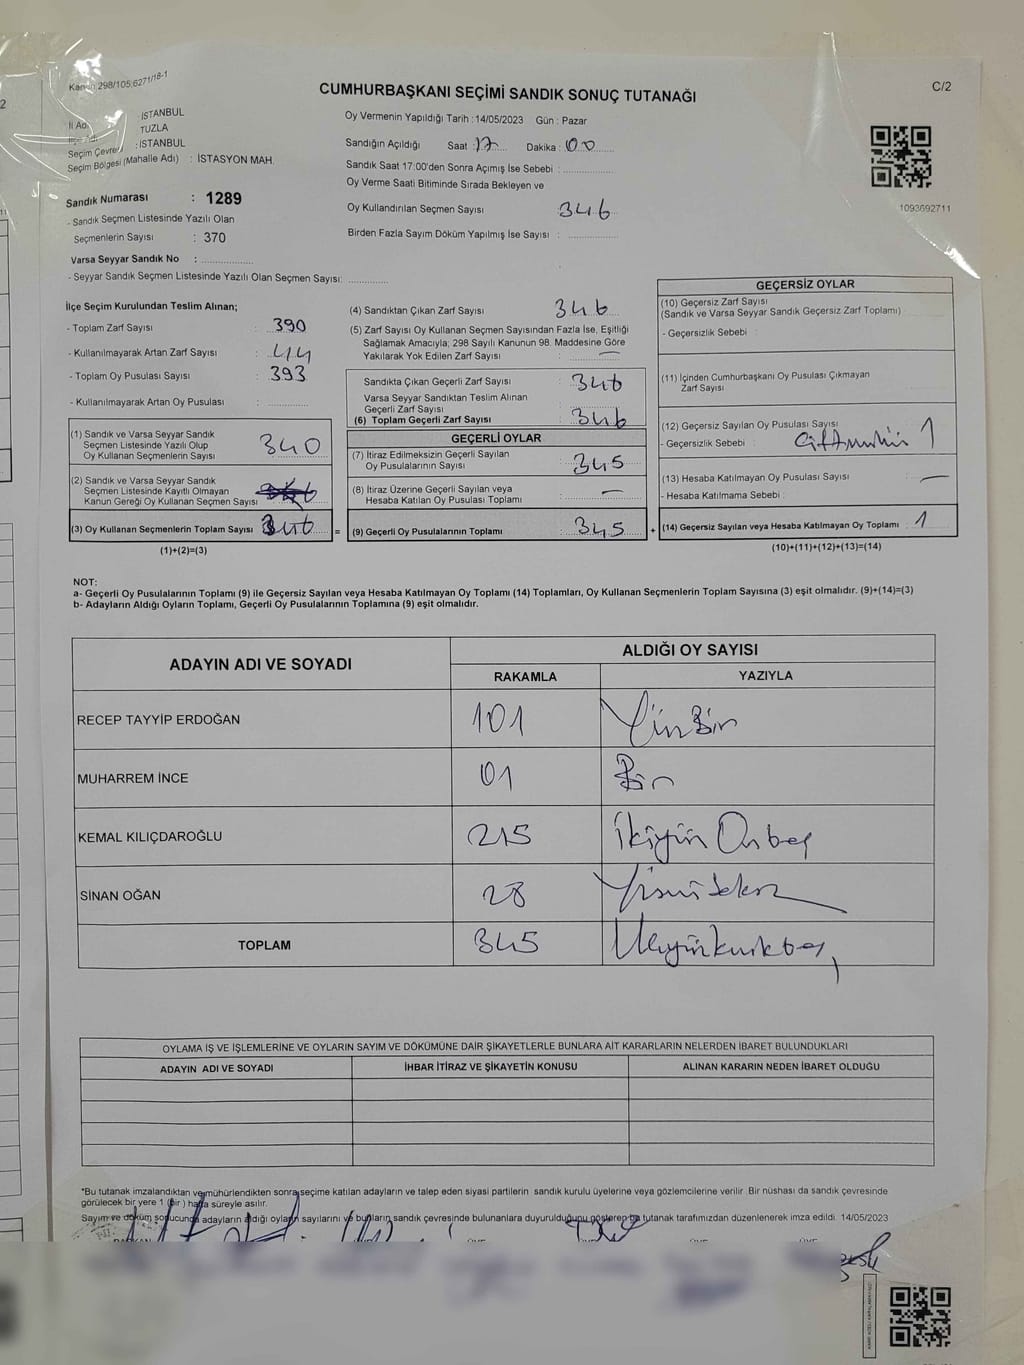 Kanun 298/105;6271/18-1
CUMHURBAŞKANI SEÇİMİ SANDIK SONUÇ TUTANAĞI
C/2
İl Adı : İSTANBUL
İlçe Adı : TUZLA
Seçim Çevresi : İSTANBUL
Seçim Bölgesi (Mahalle Adı) : İSTASYON MAH.
Oy Vermenin Yapıldığı Tarih : 14/05/2023 Gün : Pazar
Sandığın Açıldığı Saat : 17 Dakika : 00
Sandık Saat 17:00'den Sonra Açımış İse Sebebi :
Oy Verme Saati Bitiminde Sırada Bekleyen ve
Oy Kullandırılan Seçmen Sayısı : 346
Birden Fazla Sayım Döküm Yapılmış İse Sayısı :
1093692711
Sandık Numarası : 1289
- Sandık Seçmen Listesinde Yazılı Olan
Seçmenlerin Sayısı : 370
Varsa Seyyar Sandık No :
- Seyyar Sandık Seçmen Listesinde Yazılı Olan Seçmen Sayısı:
İlçe Seçim Kurulundan Teslim Alınan;
- Toplam Zarf Sayısı : 390
- Kullanılmayarak Artan Zarf Sayısı : 44
- Toplam Oy Pusulası Sayısı : 393
- Kullanılmayarak Artan Oy Pusulası :
(1) Sandık ve Varsa Seyyar Sandık
Seçmen Listesinde Yazılı Olup
Oy Kullanan Seçmenlerin Sayısı : 340
(2) Sandık ve Varsa Seyyar Sandık
Seçmen Listesinde Kayıtlı Olmayan
Kanun Gereği Oy Kullanan Seçmen Sayısı
(3) Oy Kullanan Seçmenlerin Toplam Sayısı : 346 =
(1)+(2)=(3)
(4) Sandıktan Çıkan Zarf Sayısı : 346
(5) Zarf Sayısı Oy Kullanan Seçmen Sayısından Fazla İse, Eşitliği
Sağlamak Amacıyla; 298 Sayılı Kanunun 98. Maddesine Göre
Yakılarak Yok Edilen Zarf Sayısı : —
Sandıkta Çıkan Geçerli Zarf Sayısı : 346
Varsa Seyyar Sandıktan Teslim Alınan
Geçerli Zarf Sayısı
(6) Toplam Geçerli Zarf Sayısı : 346
GEÇERLİ OYLAR
(7) İtiraz Edilmeksizin Geçerli Sayılan
Oy Pusulalarının Sayısı : 345
(8) İtiraz Üzerine Geçerli Sayılan veya
Hesaba Katılan Oy Pusulası Toplamı : —
(9) Geçerli Oy Pusulalarının Toplamı : 345 +
GEÇERSİZ OYLAR
(10) Geçersiz Zarf Sayısı
(Sandık ve Varsa Seyyar Sandık Geçersiz Zarf Toplamı)
- Geçersizlik Sebebi :
(11) İçinden Cumhurbaşkanı Oy Pusulası Çıkmayan
Zarf Sayısı
(12) Geçersiz Sayılan Oy Pusulası Sayısı
- Geçersizlik Sebebi : 1
(13) Hesaba Katılmayan Oy Pusulası Sayısı : —
- Hesaba Katılmama Sebebi :
(14) Geçersiz Sayılan veya Hesaba Katılmayan Oy Toplamı : 1
(10)+(11)+(12)+(13)=(14)
NOT:
a- Geçerli Oy Pusulalarının Toplamı (9) ile Geçersiz Sayılan veya Hesaba Katılmayan Oy Toplamı (14) Toplamları, Oy Kullanan Seçmenlerin Toplam Sayısına (3) eşit olmalıdır. (9)+(14)=(3)
b- Adayların Aldığı Oyların Toplamı, Geçerli Oy Pusulalarının Toplamına (9) eşit olmalıdır.
ADAYIN ADI VE SOYADI
ALDIĞI OY SAYISI
RAKAMLA YAZIYLA
RECEP TAYYİP ERDOĞAN 101 YüzBir
MUHARREM İNCE 01 Bir
KEMAL KILIÇDAROĞLU 215 İkiyüz Onbeş
SİNAN OĞAN 28 Yirmi Sekiz
TOPLAM 345 Üçyüzkırkbeş
OYLAMA İŞ VE İŞLEMLERİNE VE OYLARIN SAYIM VE DÖKÜMÜNE DAİR ŞİKAYETLERLE BUNLARA AİT KARARLARIN NELERDEN İBARET BULUNDUKLARI
ADAYIN ADI VE SOYADI İHBAR İTİRAZ VE ŞİKAYETİN KONUSU ALINAN KARARIN NEDEN İBARET OLDUĞU
*Bu tutanak imzalandıktan ve mühürlendikten sonra seçime katılan adayların ve talep eden siyasi partilerin sandık kurulu üyelerine veya gözlemcilerine verilir. Bir nüshası da sandık çevresinde
görülecek bir yere 1 (Bir) hafta süreyle asılır.
Sayım ve döküm sonucunda adayların aldığı oyların sayılarını ve bunların sandık çevresinde bulunanlara duyurulduğunu gösteren bu tutanak tarafımızdan düzenlenerek imza edildi. 14/05/2023